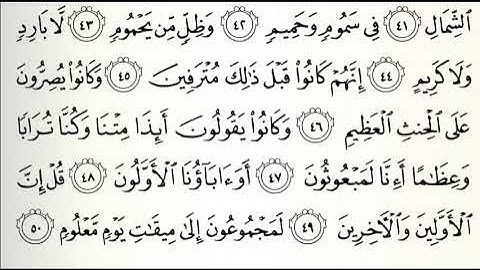 ٱلشِّمَالِ ٤١ فِى سَمُومٍ وَحَمِيمٍ ٤٢ وَظِلٍّ مِّن يَحْمُومٍ ٤٣ لَّا بَارِدٍ
وَلَا كَرِيمٍ ٤٤ إِنَّهُمْ كَانُوا۟ قَبْلَ ذَٰلِكَ مُتْرَفِينَ ٤٥ وَكَانُوا۟ يُصِرُّونَ
عَلَى ٱلْحِنثِ ٱلْعَظِيمِ ٤٦ وَكَانُوا۟ يَقُولُونَ أَئِذَا مِتْنَا وَكُنَّا تُرَابًا
وَعِظَٰمًا أَءِنَّا لَمَبْعُوثُونَ ٤٧ أَوَءَابَآؤُنَا ٱلْأَوَّلُونَ ٤٨ قُلْ إِنَّ
ٱلْأَوَّلِينَ وَٱلْءَاخِرِينَ ٤٩ لَمَجْمُوعُونَ إِلَىٰ مِيقَٰتِ يَوْمٍ مَّعْلُومٍ ٥٠